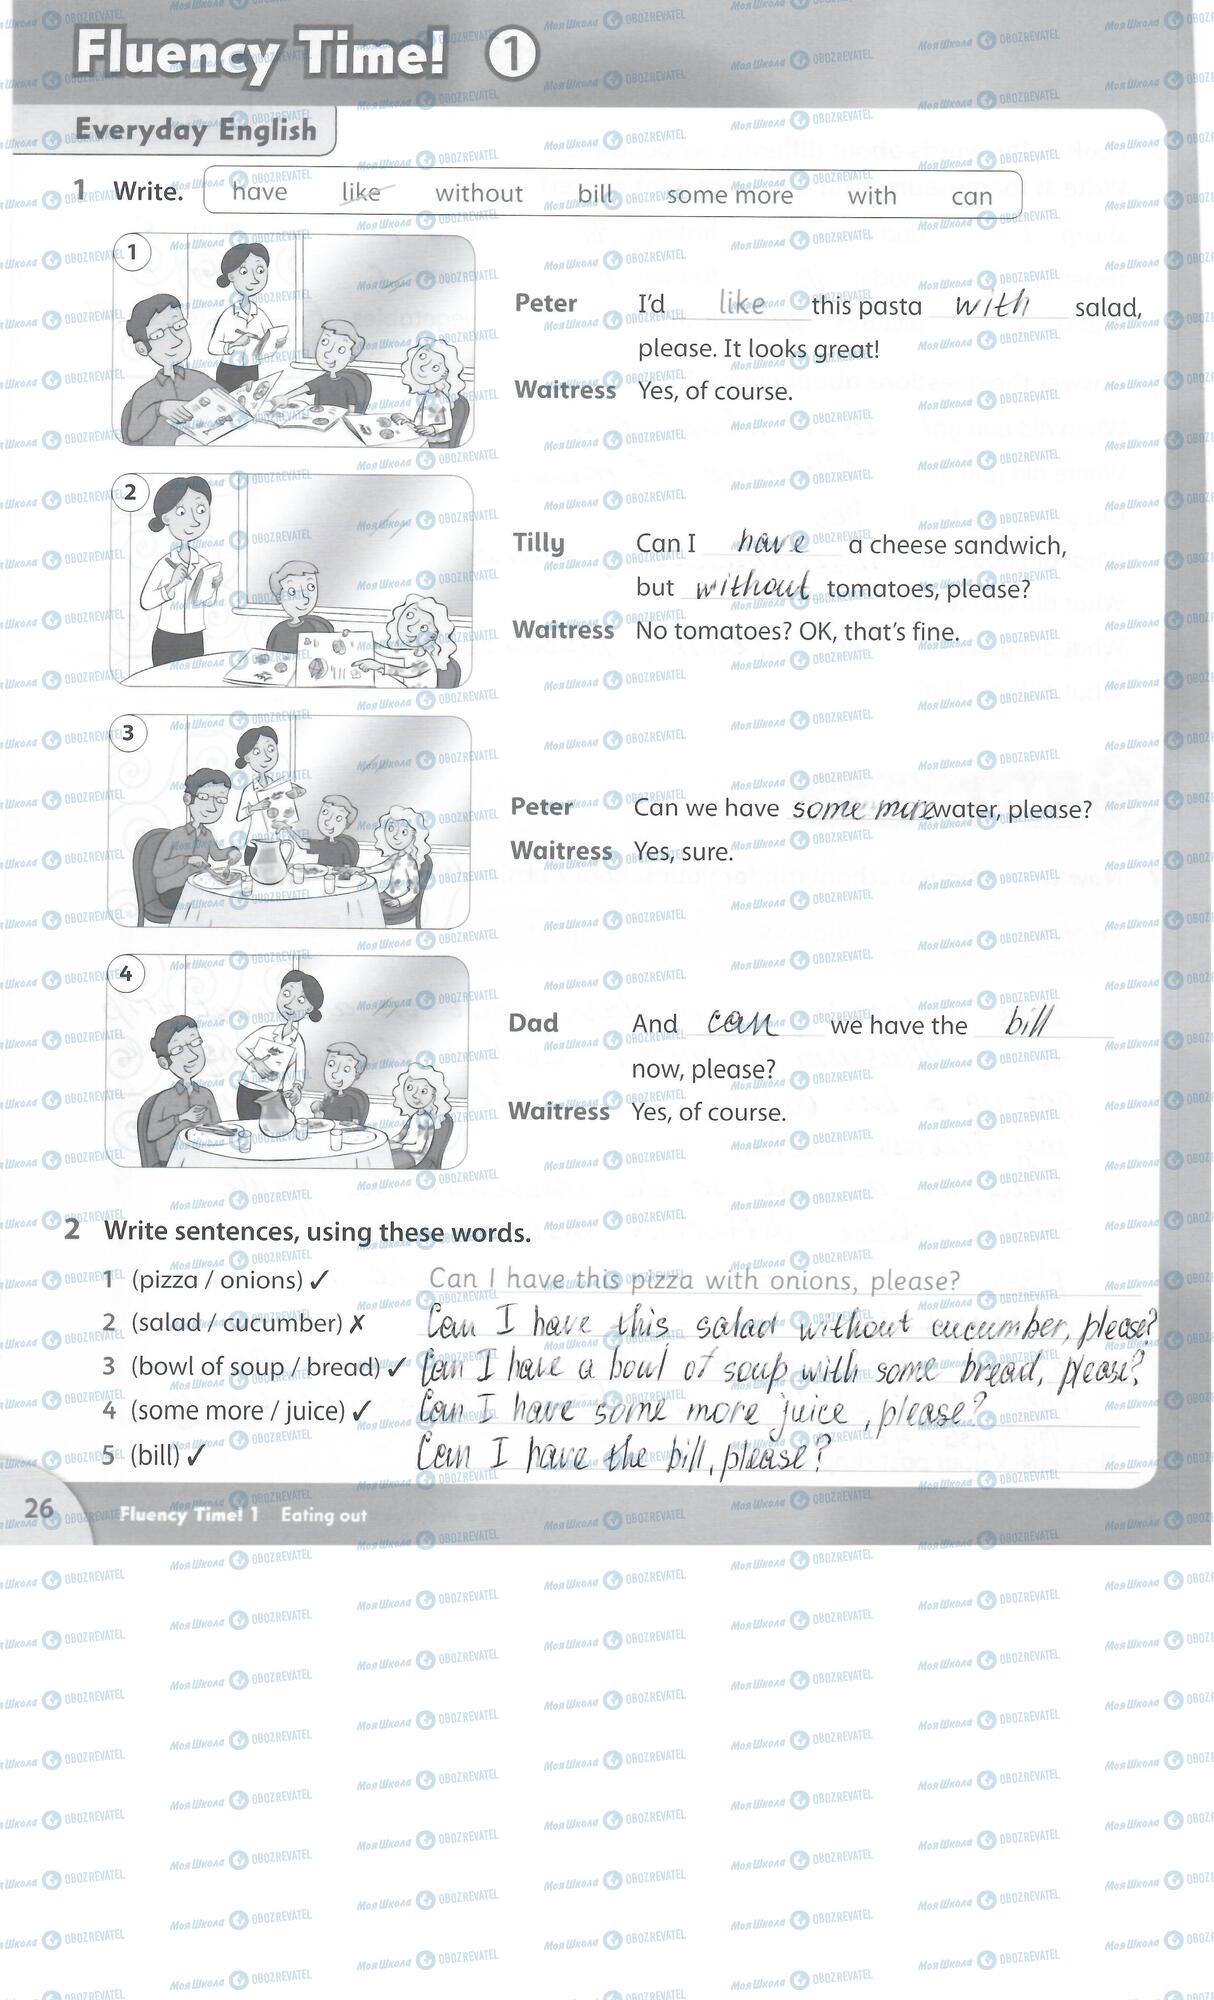 Fluency Time! 1
Everyday English
1 Write. have like without bill some more with can
1
Peter I'd like this pasta with salad,
please. It looks great!
Waitress Yes, of course.
2
Tilly Can I have a cheese sandwich,
but without tomatoes, please?
Waitress No tomatoes? OK, that's fine.
3
Peter Can we have some more water, please?
Waitress Yes, sure.
4
Dad And can we have the bill
now, please?
Waitress Yes, of course.
2 Write sentences, using these words.
1 (pizza / onions) ✓ Can I have this pizza with onions, please?
2 (salad / cucumber) ✗ Can I have this salad without cucumber, please?
3 (bowl of soup / bread) ✓ Can I have a bowl of soup with some bread, please?
4 (some more / juice) ✓ Can I have some more juice, please?
5 (bill) ✓ Can I have the bill, please?
26 Fluency Time! 1 Eating out
МояШкола OBOZREVATEL